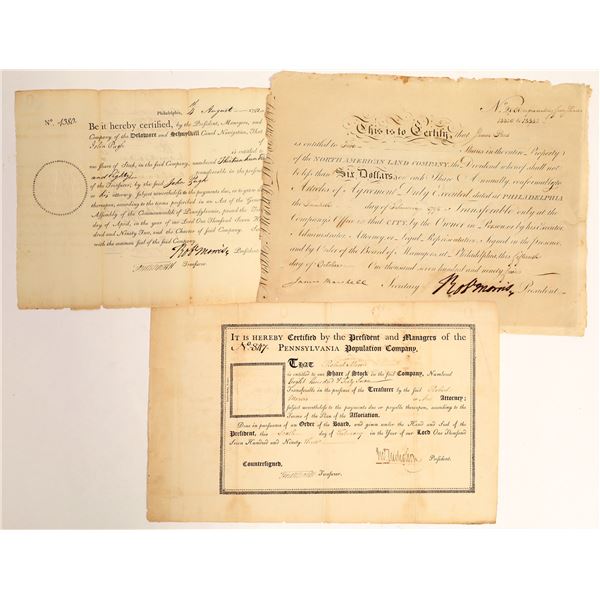 Philadelphia, 4 August
No. 4380.
Be it hereby certified, by the President, Managers, and
Company of the Delaware and Schuylkill Canal Navigation, That
John Pugh
is entitled to
one Share of Stock, in the said Company, numbered
and Eighty transferable in the presence
of the Treasurer, by the said John Pugh
or his Attorney, subject nevertheless to the payments due or to grow due
thereupon, according to the terms prescribed in an Act of the General
Assembly of the Commonwealth of Pennsylvania, passed the
day of April, in the year of our Lord One Thousand Seven
Hundred and Ninety Two, and the Charter of said Company,
with the common seal of the said Company.
Robt Morris President
Treasurer.
No.
This is to Certify, that James
is entitled to Shares in the entire Property
of the NORTH AMERICAN LAND COMPANY; the Dividend whereof shall not
be less than Six Dollars on each Share Annually, conformably to
Articles of Agreement Duly Executed, dated at PHILADELPHIA
the day of February 1795 Transferable only at the
Company's Office in that CITY, by the Owner in Person or by his Executor
Administrator, Attorney or Legal Representative. Signed in the presence
and by Order of the Board of Managers, at Philadelphia, this Fifteenth
day of October One thousand seven hundred and ninety
James Marshall Secretary Robt Morris President.
IT IS HEREBY Certified by the President and Managers of the
No. 847. PENNSYLVANIA Population Company,
THAT Robert Morris
is entitled to one Share of Stock in the said Company, Numbered
Eight Hundred Forty Seven
Transferable in the presence of the Treasurer by the said Robert
Morris or his Attorney;
subject nevertheless to the payments due or payable thereupon, according to the
Terms of the Plan of the Association.
Done in pursuance of an Order of the Board, and given under the Hand and Seal of the
President, this day of February in the Year of our Lord One Thousand
Seven Hundred and Ninety
Jno Nicholson
President.
Countersigned,
Treasurer.